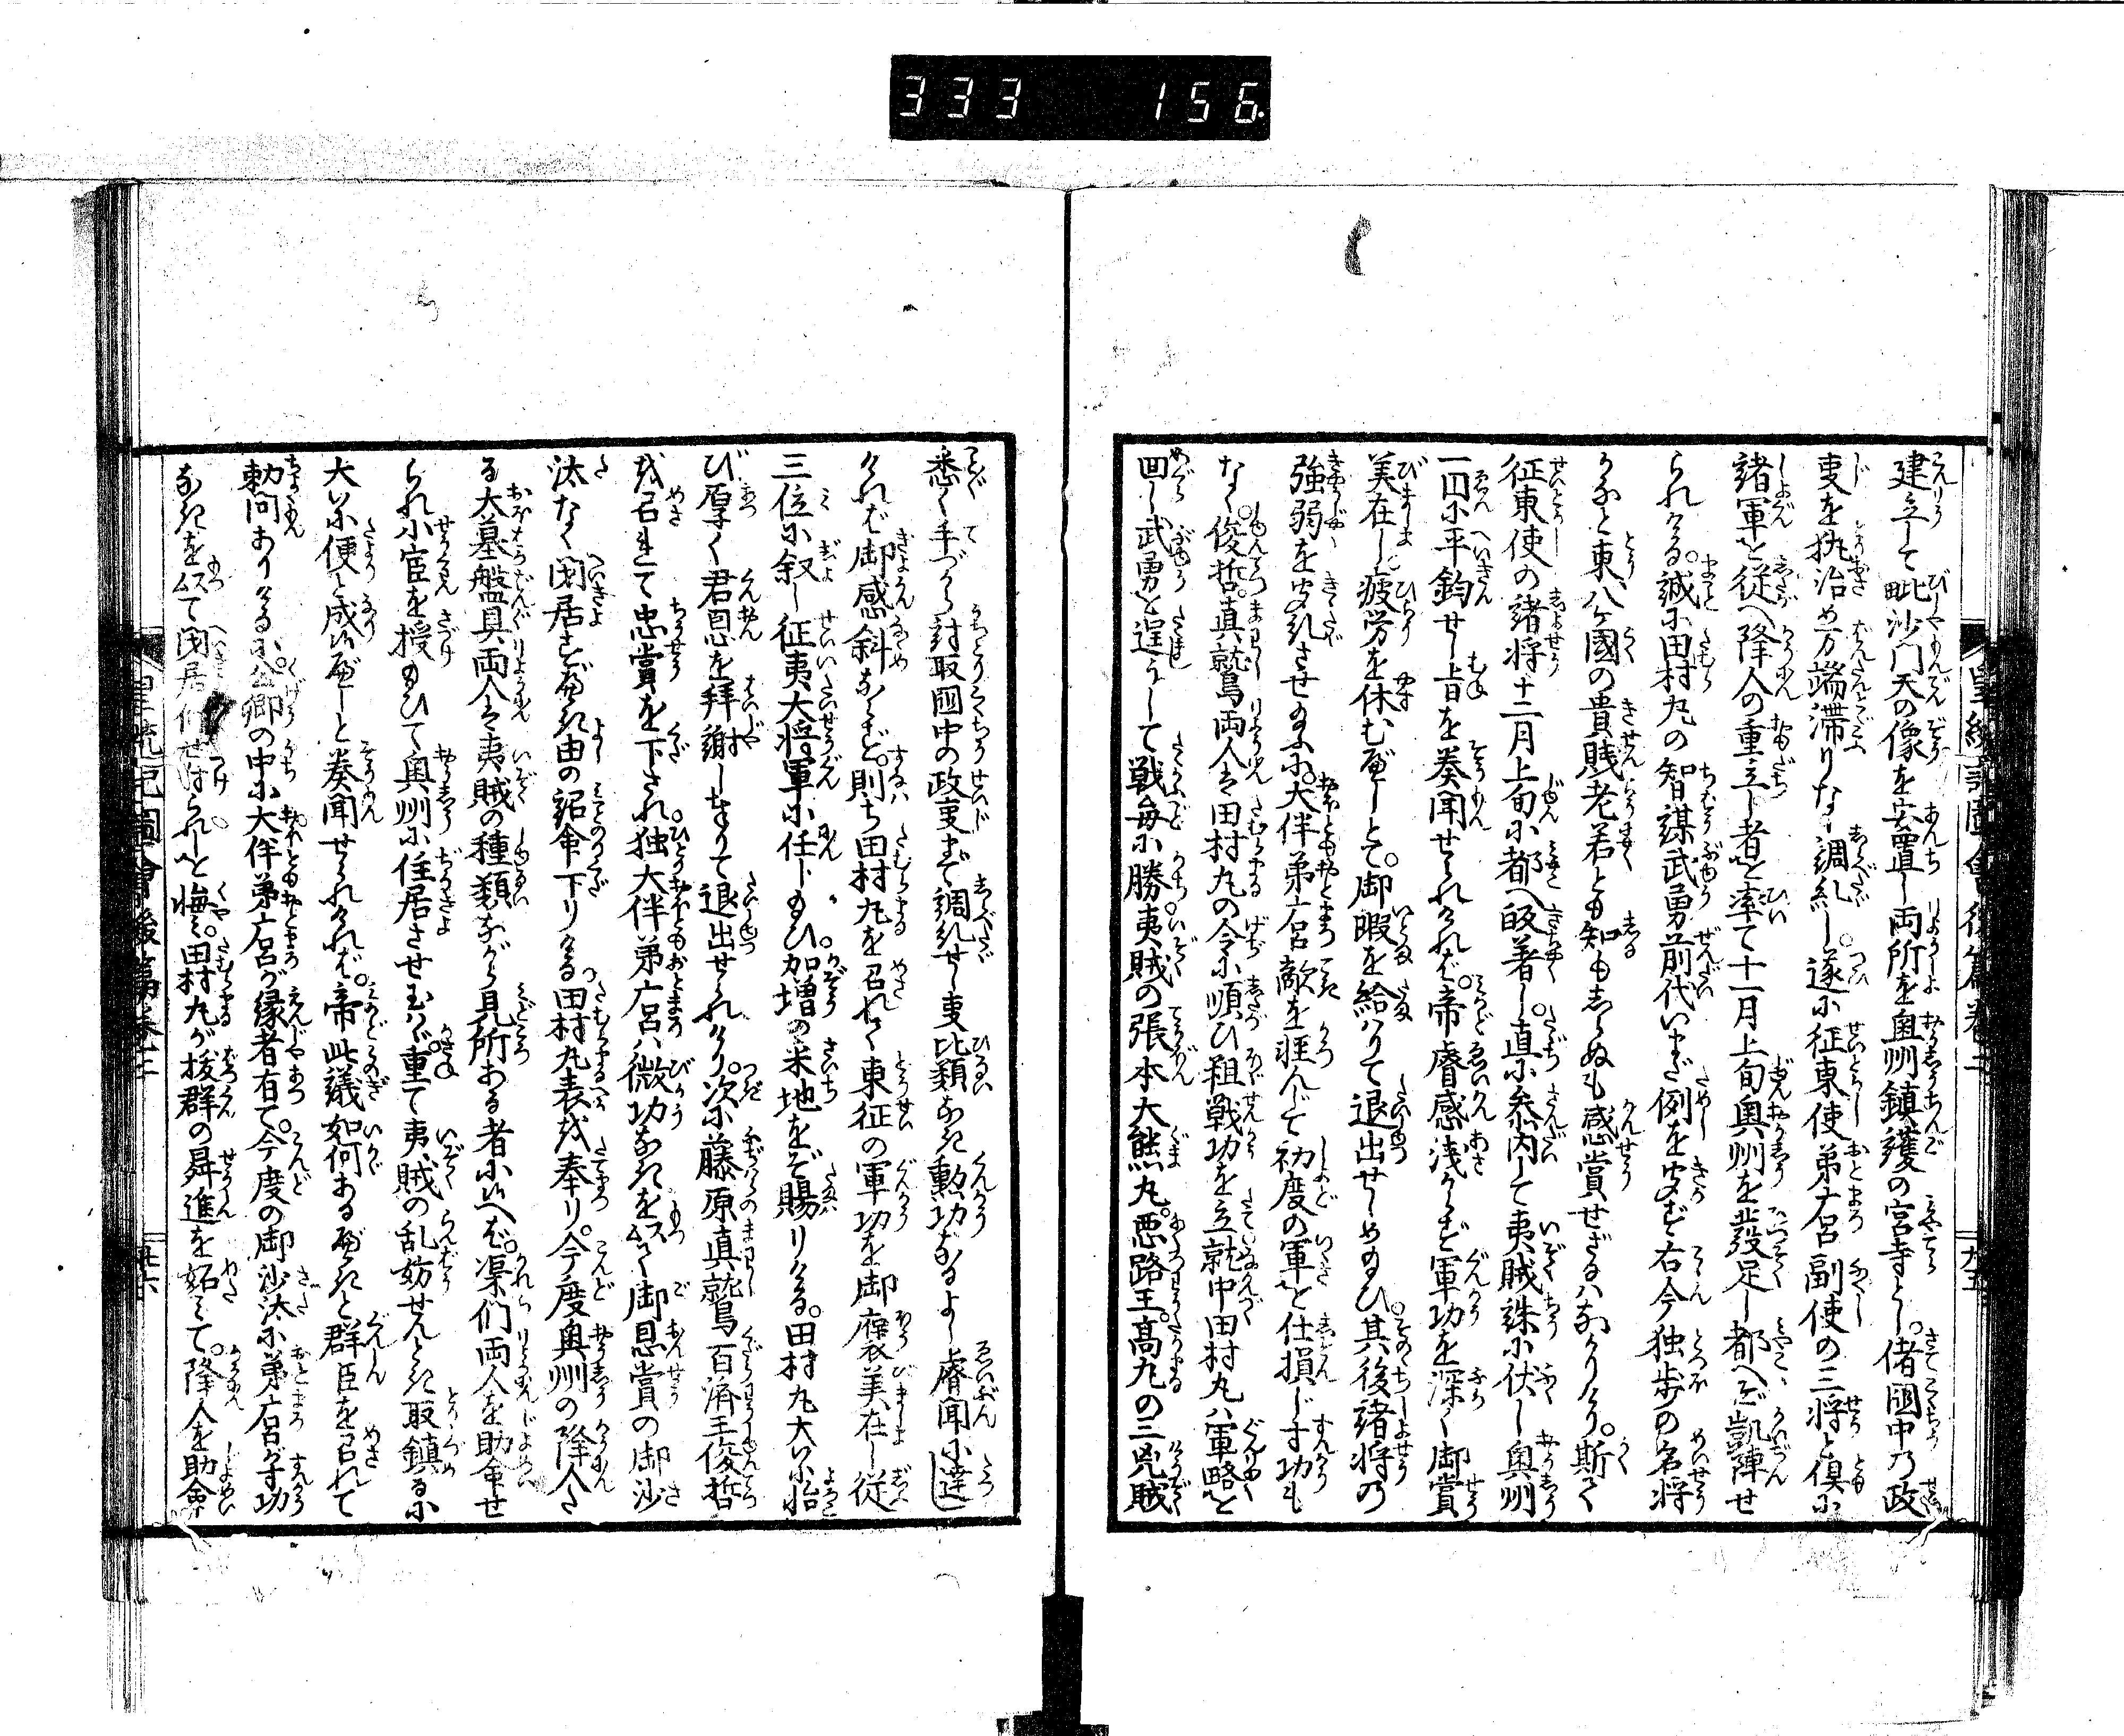 333 156
建立して毗沙門天の像を安置し両所を奥州鎮護の宮寺とし。偖國中の政
叓を執治め万端滞りなく調糺し。遂に征東使弟广呂副使の三将と俱に
諸軍を従へ降人の重立し者を率て十一月上旬奥州を發足し都へぞ凱陣せ
られける。誠に田村丸の智謀武勇前代いまだ例を聞ず古今独歩の名将
かなと東八ケ國の貴賤老若とも知もしらぬも感賞せざるハなかりけり。斯て
征東使の諸将十二月上旬に都へ皈着し。直に叅内して夷賊誅に伏し奥州
一円に平鈞せし旨を奏聞せられけれバ。帝睿感浅からず軍功を深く御賞
美在し疲労を休むべしとて。御暇を給はりて退出せしめ給ひ。其後諸将の
強弱を聞糺させ給ふに。大伴弟广呂敵を怔んじて初度の軍を仕損じ寸功も
なく。俊哲。真鷲両人は田村丸の令に順ひ粗戦功を立。就中田村丸ハ軍略を
回し武勇を逞うして戦毎に勝。夷賊の張本大熊丸。悪路王。髙丸の三兇賊
悉く手づから討取國中の政叓まで調糺せし叓比類なき勲功なるよし睿聞に達し
けれバ御感斜ならず。則ち田村丸を召れて東征の軍功を御褒美在し従
三位に叙し征夷大将軍に任じ給ひ。加増の釆地をぞ賜りける。田村丸大に怡
び厚く君恩を拝謝し奉りて退出せられけり。次に藤原真鷲百濟王俊哲
を召れて忠賞を下され。独大伴弟广呂ハ微功なきを以て御恩賞の御沙
汰なく閉居すべき由の詔命下りける。田村丸表を奉り。今度奥州の降人た
る大墓盤具両人は夷賊の種類ながら見所ある者に候へバ。渠们両人を助命せ
られ小宦を授給ひて奥州に住居させ玉ハゞ。重て夷賊の乱妨せんとき取鎮るに
大に便と成候べしと奏聞せられけれバ。帝此議如何あるべきと群臣を召れて
勅問ありけるに。公卿の中に大伴弟广呂が縁者有て。今度の御沙汰に弟广呂が寸功
なきを以て閉居仰せ付られしと悔み。田村丸が抜群の舜進を妬みて。降人を助命